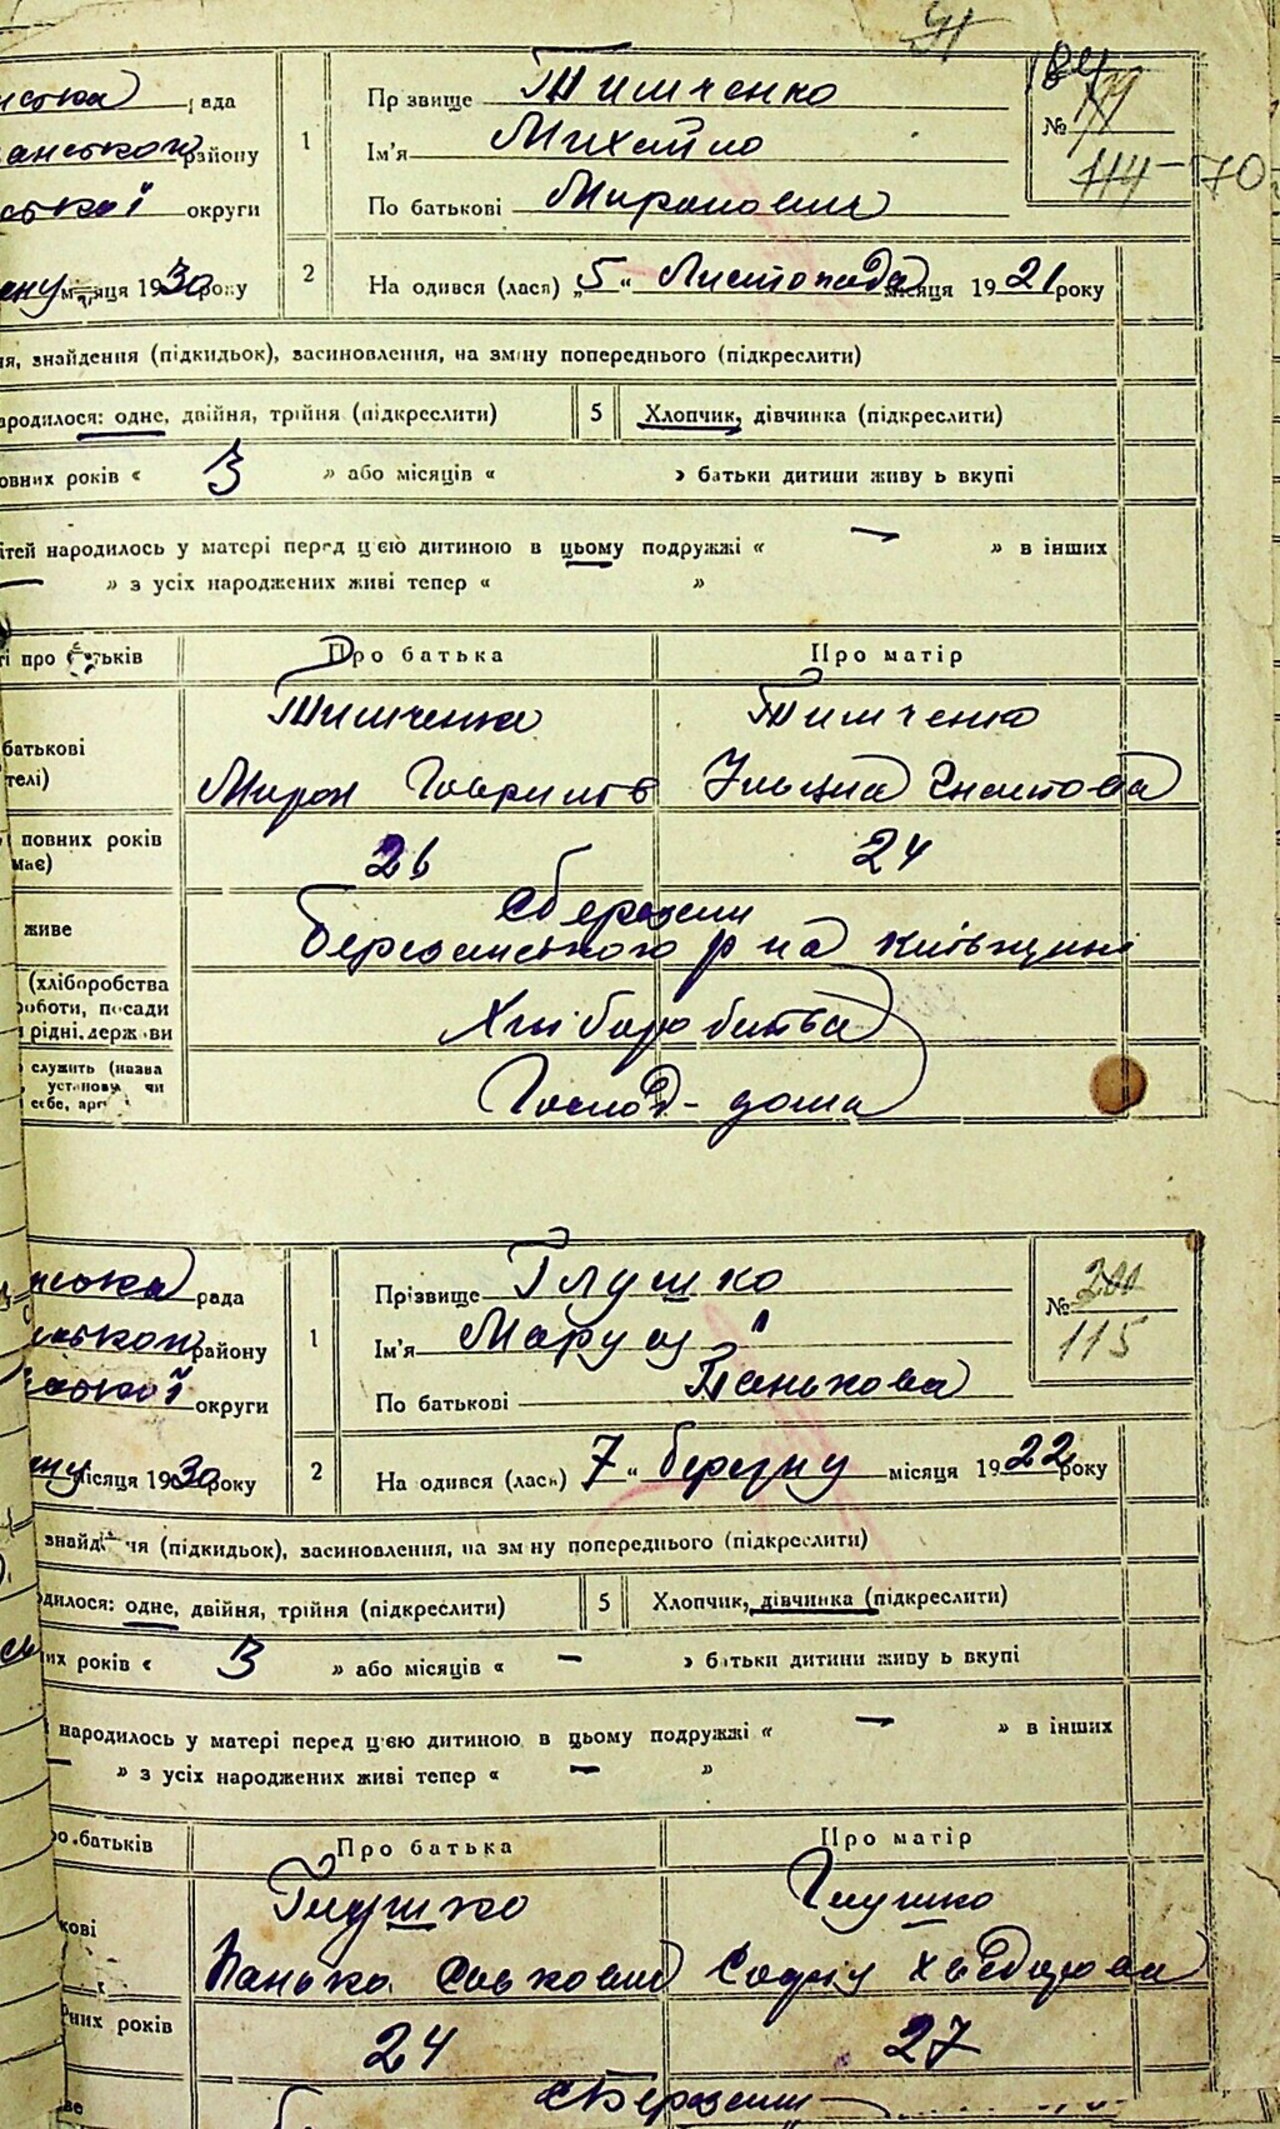 рада 1 Прізвище Тимченко №
району Ім'я Михайло 114-70
округи По батькові Миронович
місяця 1930 року 2 На одився (лася) „5“ Листопада місяця 1921 року
ня, знайдення (підкидьок), засиновлення, на зміну попереднього (підкреслити)
ародилося: одне, двійня, трійня (підкреслити) 5 Хлопчик, дівчинка (підкреслити)
овних років « 3 » або місяців « » батьки дитини живу ь вкупі
ітей народилось у матері перед цією дитиною в цьому подружжі « — » в інших
— » з усіх народжених живі тепер « »
ті про батьків Про батька Про матір
Тимченко Тимченко
батькові
телі) Мирон Гаврилов Ульяна Гнатова
повних років 26 24
має)
живе с Березани
Березанського р на Київщині
(хліборобства
роботи, посади Хліборобства
рідні, держави
служить (назва
установи чи Госпо́д- дома
себе,
рада 1 Прізвище Глушко № 200
району Ім'я Маруся 115
округи По батькові Панькова
місяця 1930 року 2 На одився (лась) 7 “ березну місяця 1922 року
знайд ня (підкидьок), засиновлення, на зм ну попереднього (підкреслити)
дилося: одне, двійня, трійня (підкреслити) 5 Хлопчик, дівчинка (підкреслити)
них років « 3 » або місяців « — » батьки дитини живу ь вкупі
народилось у матері перед цією дитиною в цьому подружжі « — » в інших
— » з усіх народжених живі тепер « — »
ро батьків Про батька Про матір
Глушко Глушко
кові
Панько Савкович Софія Хведорова
них років 24 27
с Березани